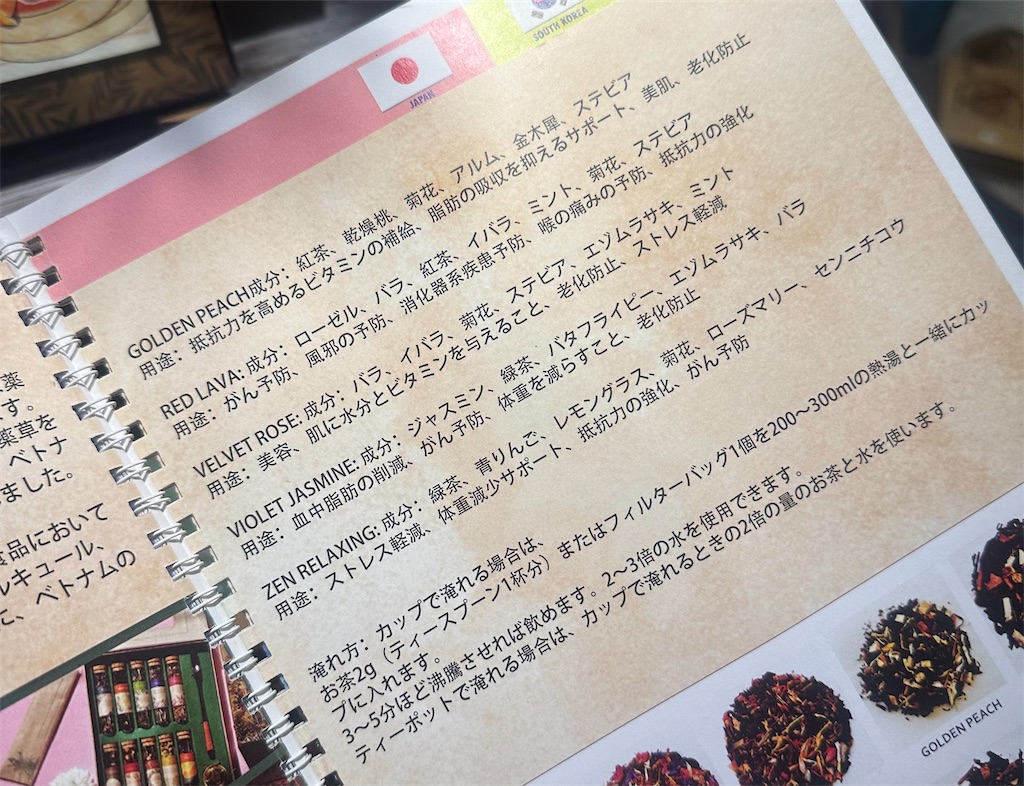 JAPAN
SOUTH KOREA
GOLDEN PEACH成分：紅茶、乾燥桃、菊花、アルム、金木犀、ステビア
用途：抵抗力を高めるビタミンの補給、脂肪の吸収を抑えるサポート、美肌、老化防止
RED LAVA: 成分：ローゼル、バラ、紅茶、イバラ、ミント、菊花、ステビア
用途：がん予防、風邪の予防、消化器系疾患予防、喉の痛みの予防、抵抗力の強化
VELVET ROSE: 成分：バラ、イバラ、菊花、ステビア、エゾムラサキ、ミント
用途：美容、肌に水分とビタミンを与えること、老化防止、ストレス軽減
VIOLET JASMINE: 成分：ジャスミン、緑茶、バタフライピー、エゾムラサキ、バラ
用途：血中脂肪の削減、がん予防、体重を減らすこと、老化防止
ZEN RELAXING: 成分：緑茶、青りんご、レモングラス、菊花、ローズマリー、センニチコウ
用途：ストレス軽減、体重減少サポート、抵抗力の強化、がん予防
淹れ方：カップで淹れる場合は、
お茶2g（ティースプーン1杯分）またはフィルターバッグ1個を200～300mlの熱湯と一緒にカッ
プに入れます。
3～5分ほど沸騰させれば飲めます。2～3倍の水を使用できます。
ティーポットで淹れる場合は、カップで淹れるときの2倍の量のお茶と水を使います。
GOLDEN PEACH
薬
す。
薬草を
ベトナ
ました。
食品において
ルキュール、
ベトナムの